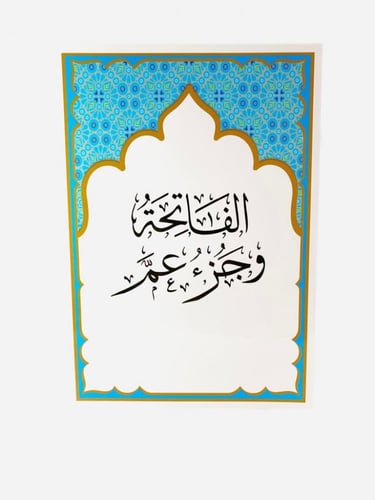 الفَاتِحَةُ
وَجُزْءُ عَمَّ